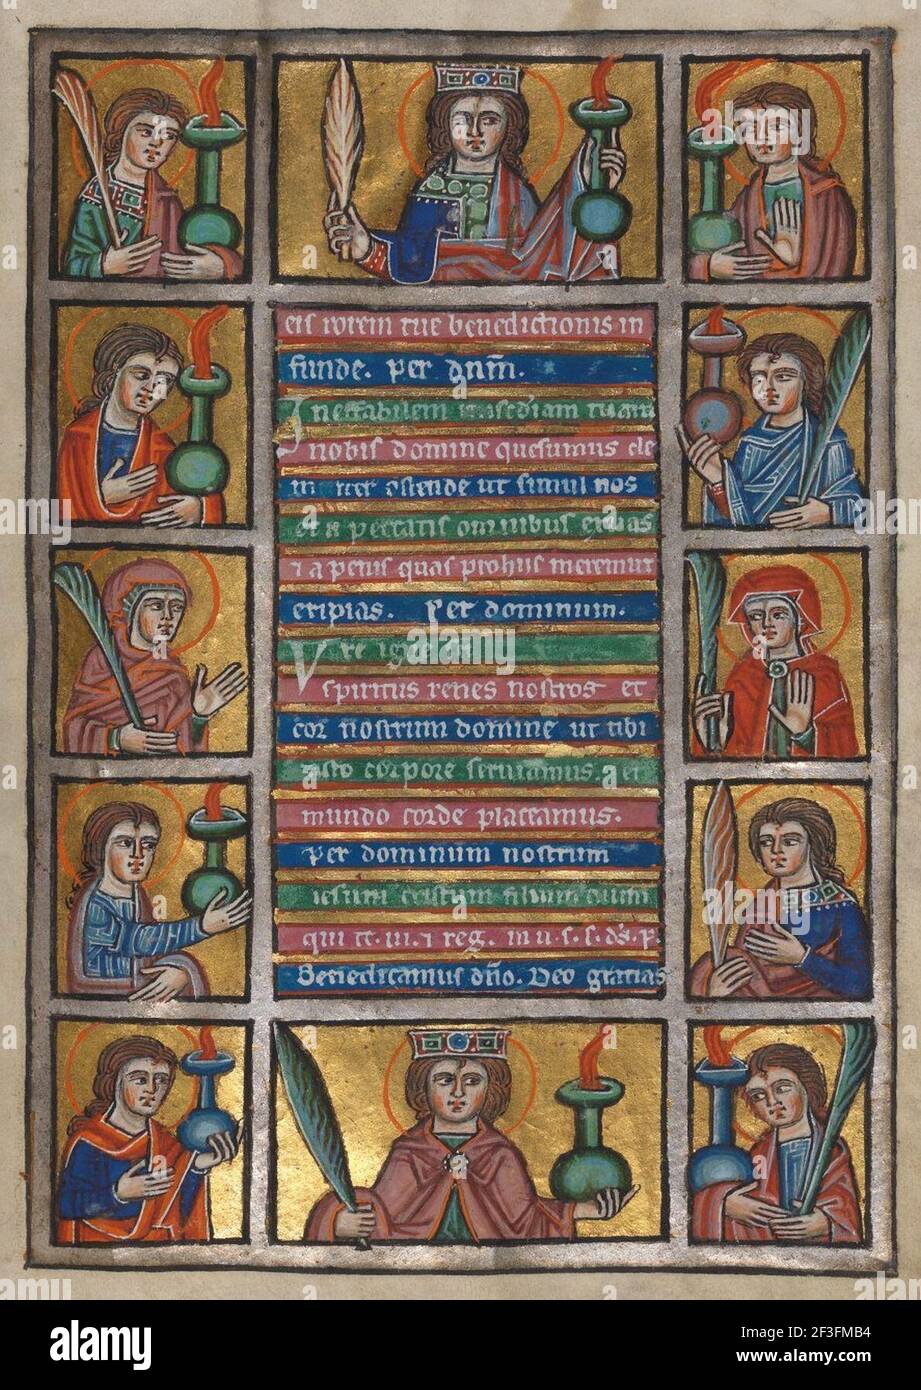 eis rorem tue benedictionis in
funde. per dn̄m.
Ineffabilem mis̄cdiam tuam
nobis domine quesumus cle
m ter ostende ut simul nos
et a peccatis omnibus exuas
⁊ a penis quas prohiis meremur
eripias. Per dominum.
Vre igne sc̄i
spiritus renes nostros et
cor nostrum domine ut tibi
casto corpore seruiamus. et
mundo corde placeamus.
per dominum nostrum
iesum cristum filium tuum
qui tc. ui. ⁊ reg. in u. s. s. ds̄. p.
Benedicamus dn̄o. Deo gratias
alamy
Image ID: 2F3FMB4
www.alamy.com